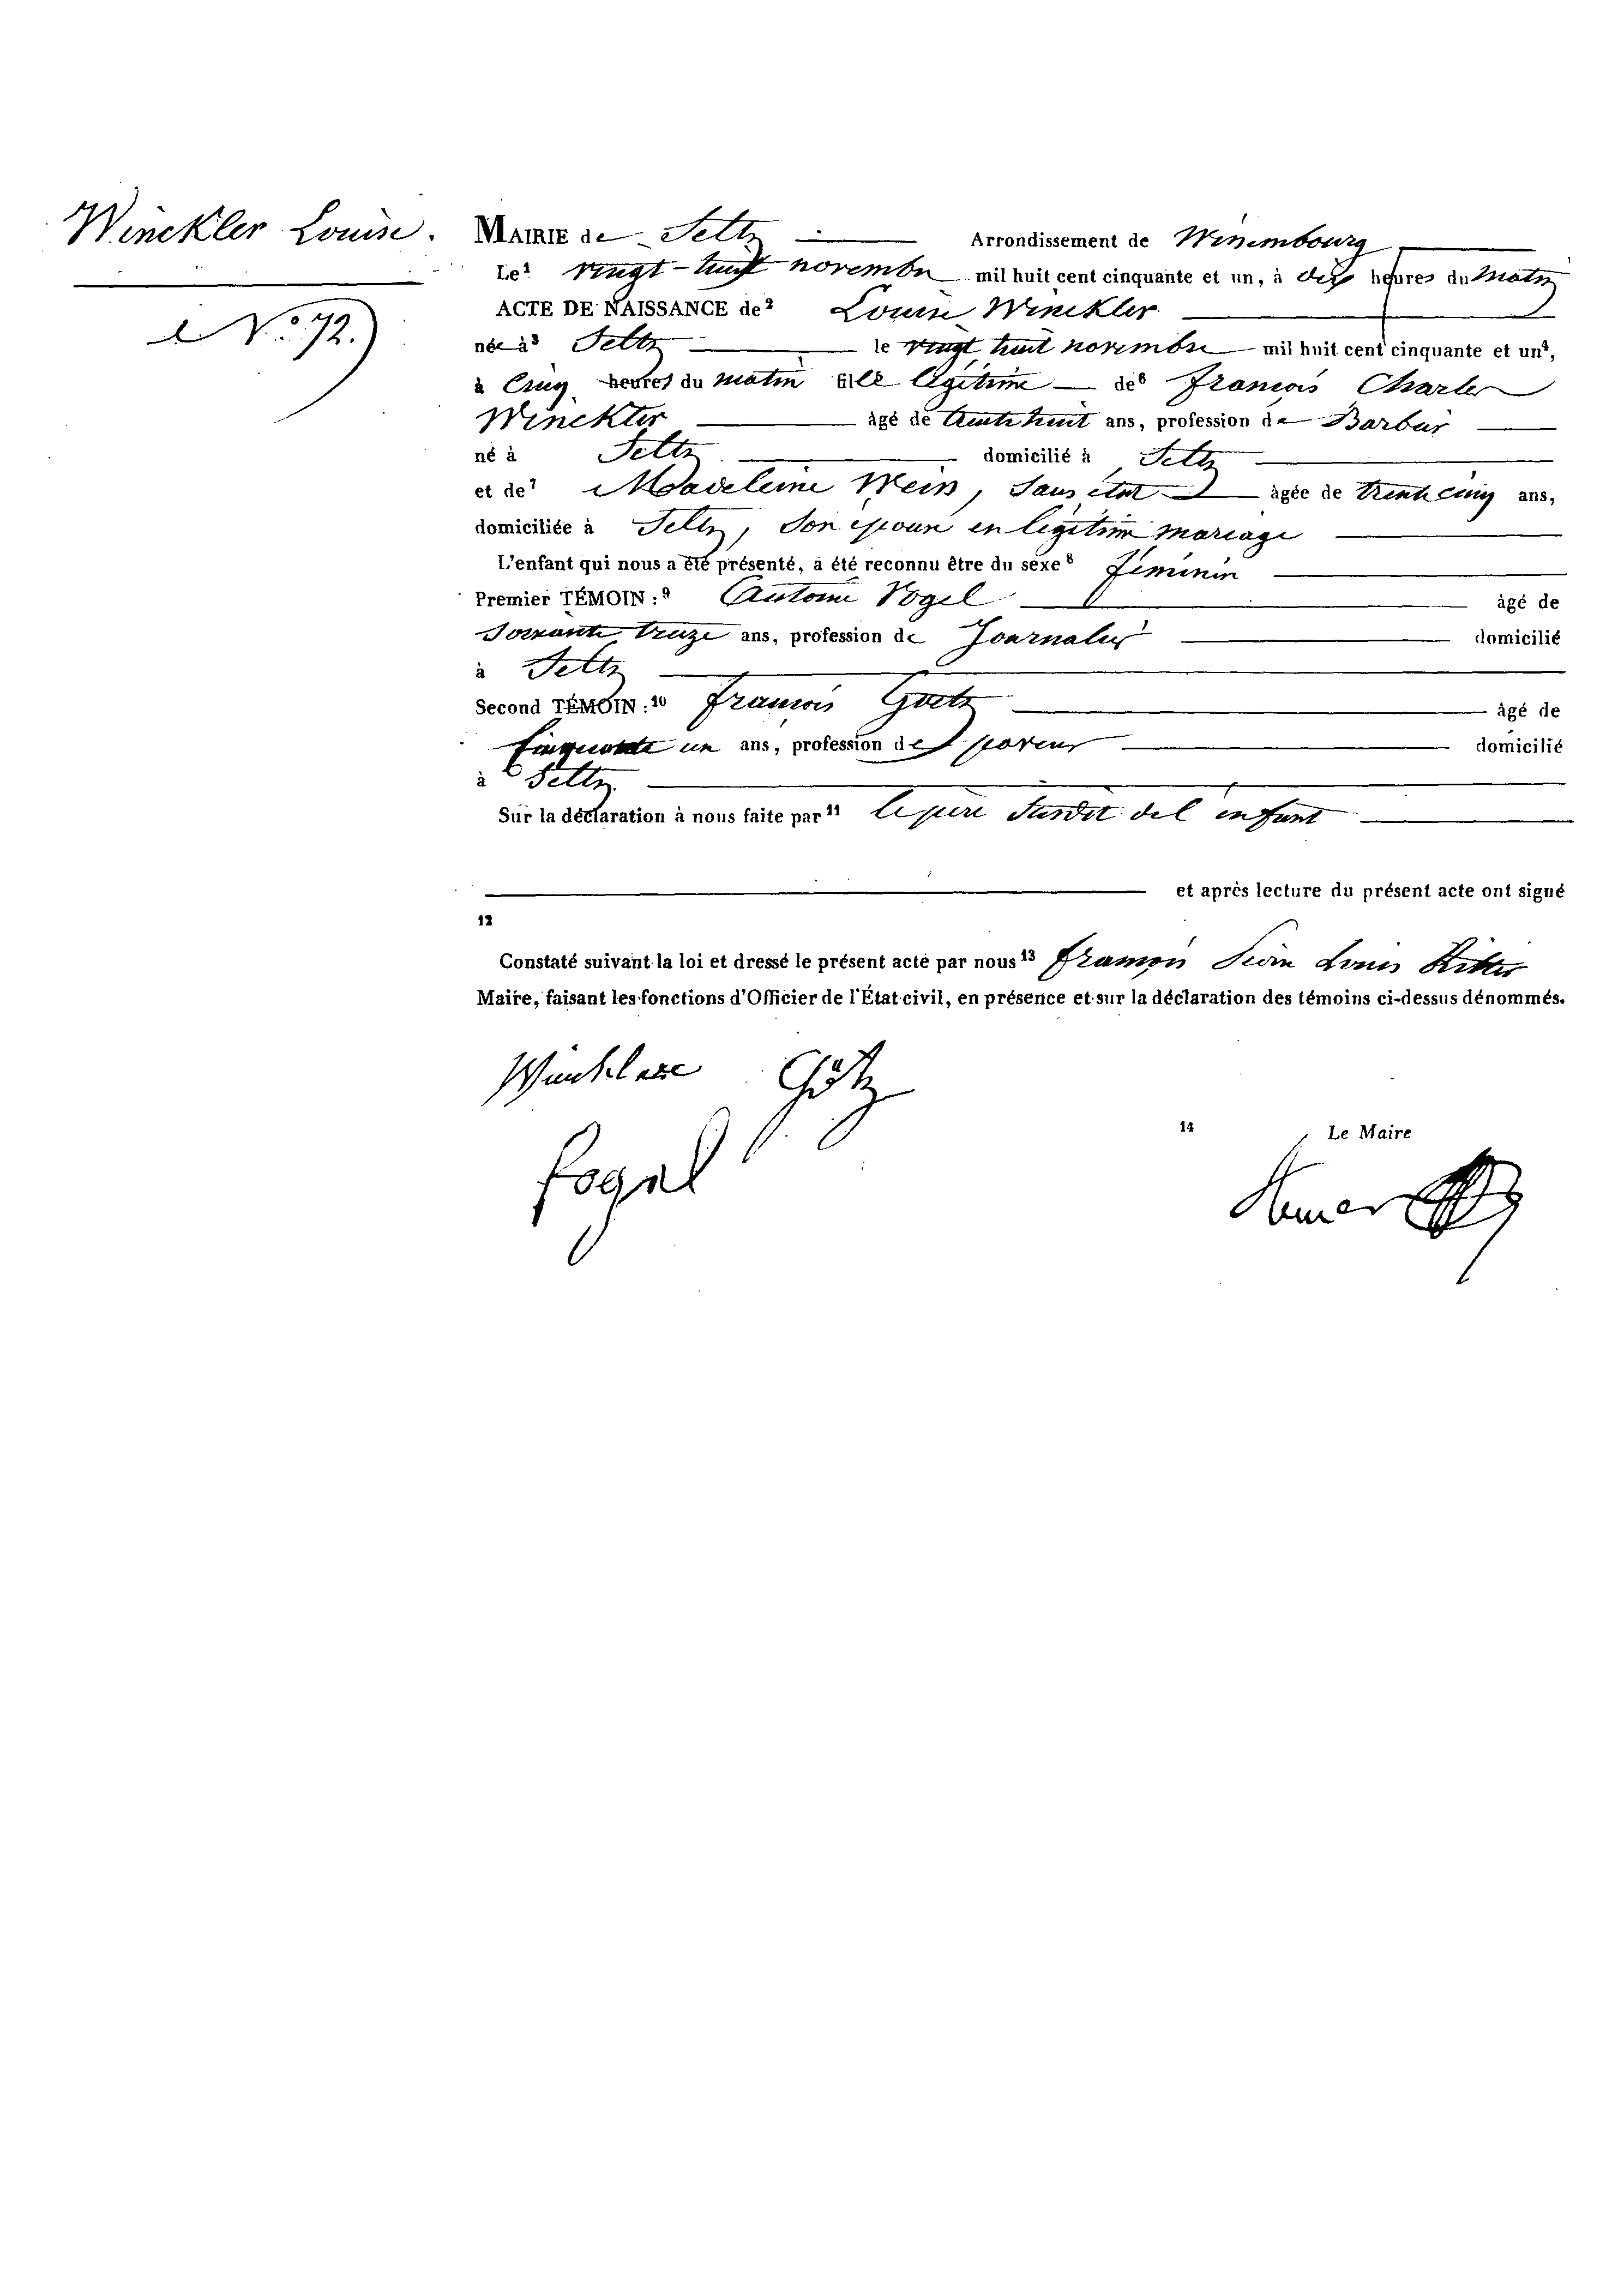 Winckler Louise.
N.° 72.
MAIRIE de Seltz Arrondissement de Wissembourg
Le¹ vingt-huit novembre mil huit cent cinquante et un, à dix heures du Matin
ACTE DE NAISSANCE de² Louise Winckler
née à³ Seltz le vingt huit novembre mil huit cent cinquante et un⁴,
à Cinq heures du matin fille légitime de⁶ François Charles
Winckler âgé de trente huit ans, profession de Barbier
né à Seltz domicilié à Seltz
et de⁷ Madeleine Weis, Sans état âgée de trente cinq ans,
domiciliée à Seltz, Son épouse en légitime mariage
L'enfant qui nous a été présenté, a été reconnu être du sexe⁸ féminin
Premier TÉMOIN :⁹ Antoine Vogel âgé de
Soixante treize ans, profession de Journalier domicilié
à Seltz
Second TÉMOIN :¹⁰ François Goetz âgé de
Cinquante un ans, profession de paveur domicilié
à Seltz
Sur la déclaration à nous faite par¹¹ le père susdit de l'enfant
et après lecture du présent acte ont signé
12
Constaté suivant la loi et dressé le présent acte par nous¹³ François Louis
Maire, faisant les fonctions d'Officier de l'État civil, en présence et sur la déclaration des témoins ci-dessus dénommés.
Götz
Fogel
14 Le Maire